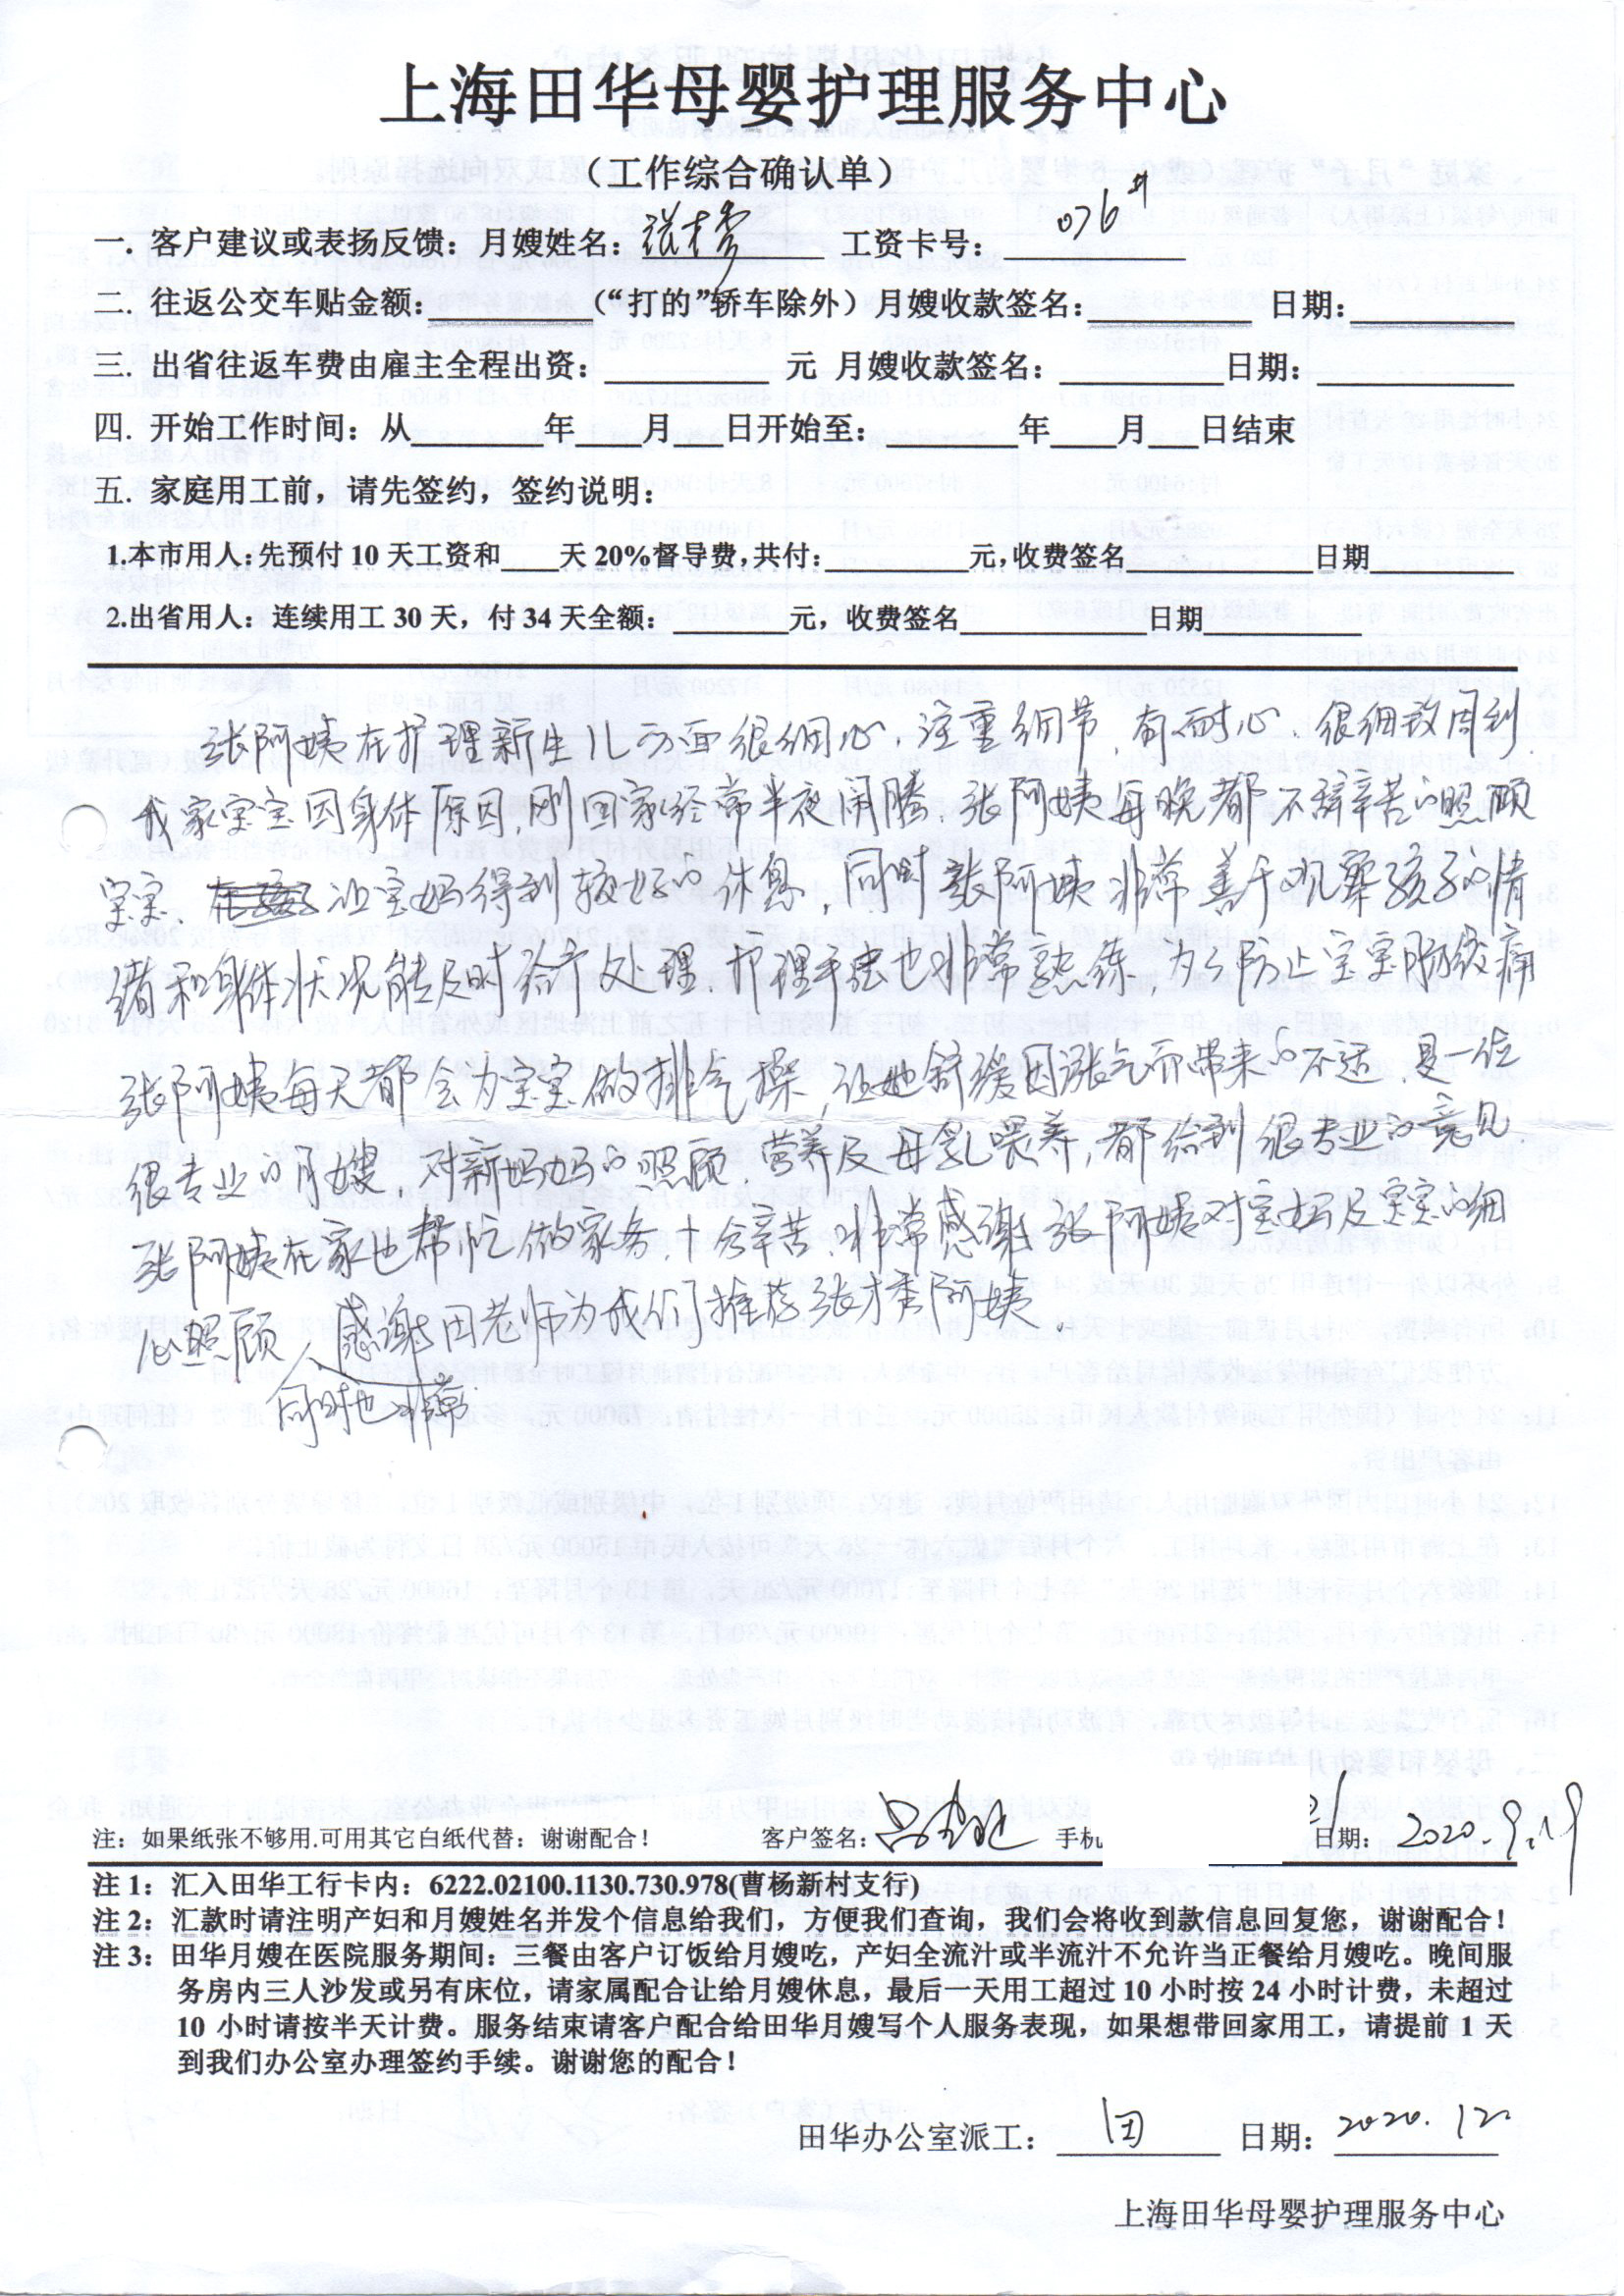 上海田华母婴护理服务中心
（工作综合确认单）
一. 客户建议或表扬反馈：月嫂姓名：张才秀 工资卡号：076#
二. 往返公交车贴金额：______（“打的”轿车除外）月嫂收款签名：______ 日期：______
三. 出省往返车费由雇主全程出资：______ 元 月嫂收款签名：______日期：______
四. 开始工作时间：从____年___月__日开始至：____年___月__日结束
五. 家庭用工前，请先签约，签约说明：
1.本市用人：先预付 10 天工资和____天 20%督导费,共付：______元,收费签名______日期______
2.出省用人：连续用工 30 天，付 34 天全额：______元，收费签名______日期______
张阿姨在护理新生儿方面很细心，注重细节，有耐心，很细致周到.
我家宝宝因身体原因，刚回家经常半夜闹腾.张阿姨每晚都不辞辛苦的照顾
宝宝、让宝妈得到较好的休息，同时张阿姨非常善于观察孩子的情
绪和身体状况能及时给予处理.护理手法也非常熟练，为了防止宝宝肠绞痛
张阿姨每天都会为宝宝做排气操，让她舒缓因涨气而带来的不适.是一位
很专业的月嫂，对新妈妈的照顾，营养及母乳喂养，都给到很专业的意见
张阿姨在家也帮忙做家务，十分辛苦，非常感谢张阿姨对宝妈及宝宝的细
心照顾 感谢田老师为我们推荐张才秀阿姨
同时也非常
注：如果纸张不够用.可用其它白纸代替：谢谢配合！ 客户签名： 手机 日期：2020.9.19
注 1：汇入田华工行卡内：6222.02100.1130.730.978(曹杨新村支行)
注 2：汇款时请注明产妇和月嫂姓名并发个信息给我们，方便我们查询，我们会将收到款信息回复您，谢谢配合！
注 3：田华月嫂在医院服务期间：三餐由客户订饭给月嫂吃，产妇全流汁或半流汁不允许当正餐给月嫂吃。晚间服
务房内三人沙发或另有床位，请家属配合让给月嫂休息，最后一天用工超过 10 小时按 24 小时计费，未超过
10 小时请按半天计费。服务结束请客户配合给田华月嫂写个人服务表现，如果想带回家用工，请提前 1 天
到我们办公室办理签约手续。谢谢您的配合！
田华办公室派工：田 日期：2020.12
上海田华母婴护理服务中心